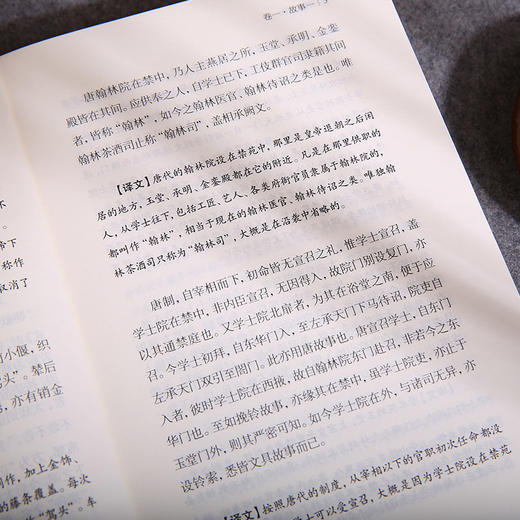 卷一·故事一
唐翰林院在禁中，乃人主燕居之所，玉堂、承明、金銮
殿皆在其间。应供奉之人，自学士已下，工伎群官司隶籍其间
者，皆称“翰林”，如今之翰林医官、翰林待诏之类是也。唯
翰林茶酒司止称“翰林司”，盖相承阙文。
【译文】唐代的翰林院设在禁苑中，那里是皇帝退朝之后闲
居的地方，玉堂、承明、金銮殿都在它的附近。凡是在那里供职的
人，从学士往下，包括工匠、艺人，各类府衙官员隶属于翰林院的，
都叫作“翰林”，相当于现在的翰林医官、翰林待诏之类。唯独翰
林茶酒司只称为“翰林司”，大概是在沿袭中省略的。
唐制，自宰相而下，初命皆无宣召之礼，惟学士宣召，盖
学士院在禁中，非内臣宣召，无因得入，故院门别设复门，亦
以其通禁庭也。又学士院北扉者，为其在浴堂之南，便于应
召。今学士初拜，自东华门入，至左承天门下马待诏，院吏自
左承天门双引至阁门。此亦用唐故事也。唐宣召学士，自东门
入者，彼时学士院在西掖，故自翰林院东门赴召，非若今之东
华门也。至如挽铃故事，亦缘其在禁中，虽学士院吏，亦止于
玉堂门外，则其严密可知。如今学士院在外，与诸司无异，亦
设铃索，悉皆文具故事而已。
【译文】按照唐代的制度，从宰相以下的官职初次任命都没
可以受宣召，大概是因为学士院设在禁苑
不
帝下
称作
取消了
小偃，织
驾头”。辇后
，亦有销金
作，加上金饰、
的藤条覆盖。每次
“驾头”。车